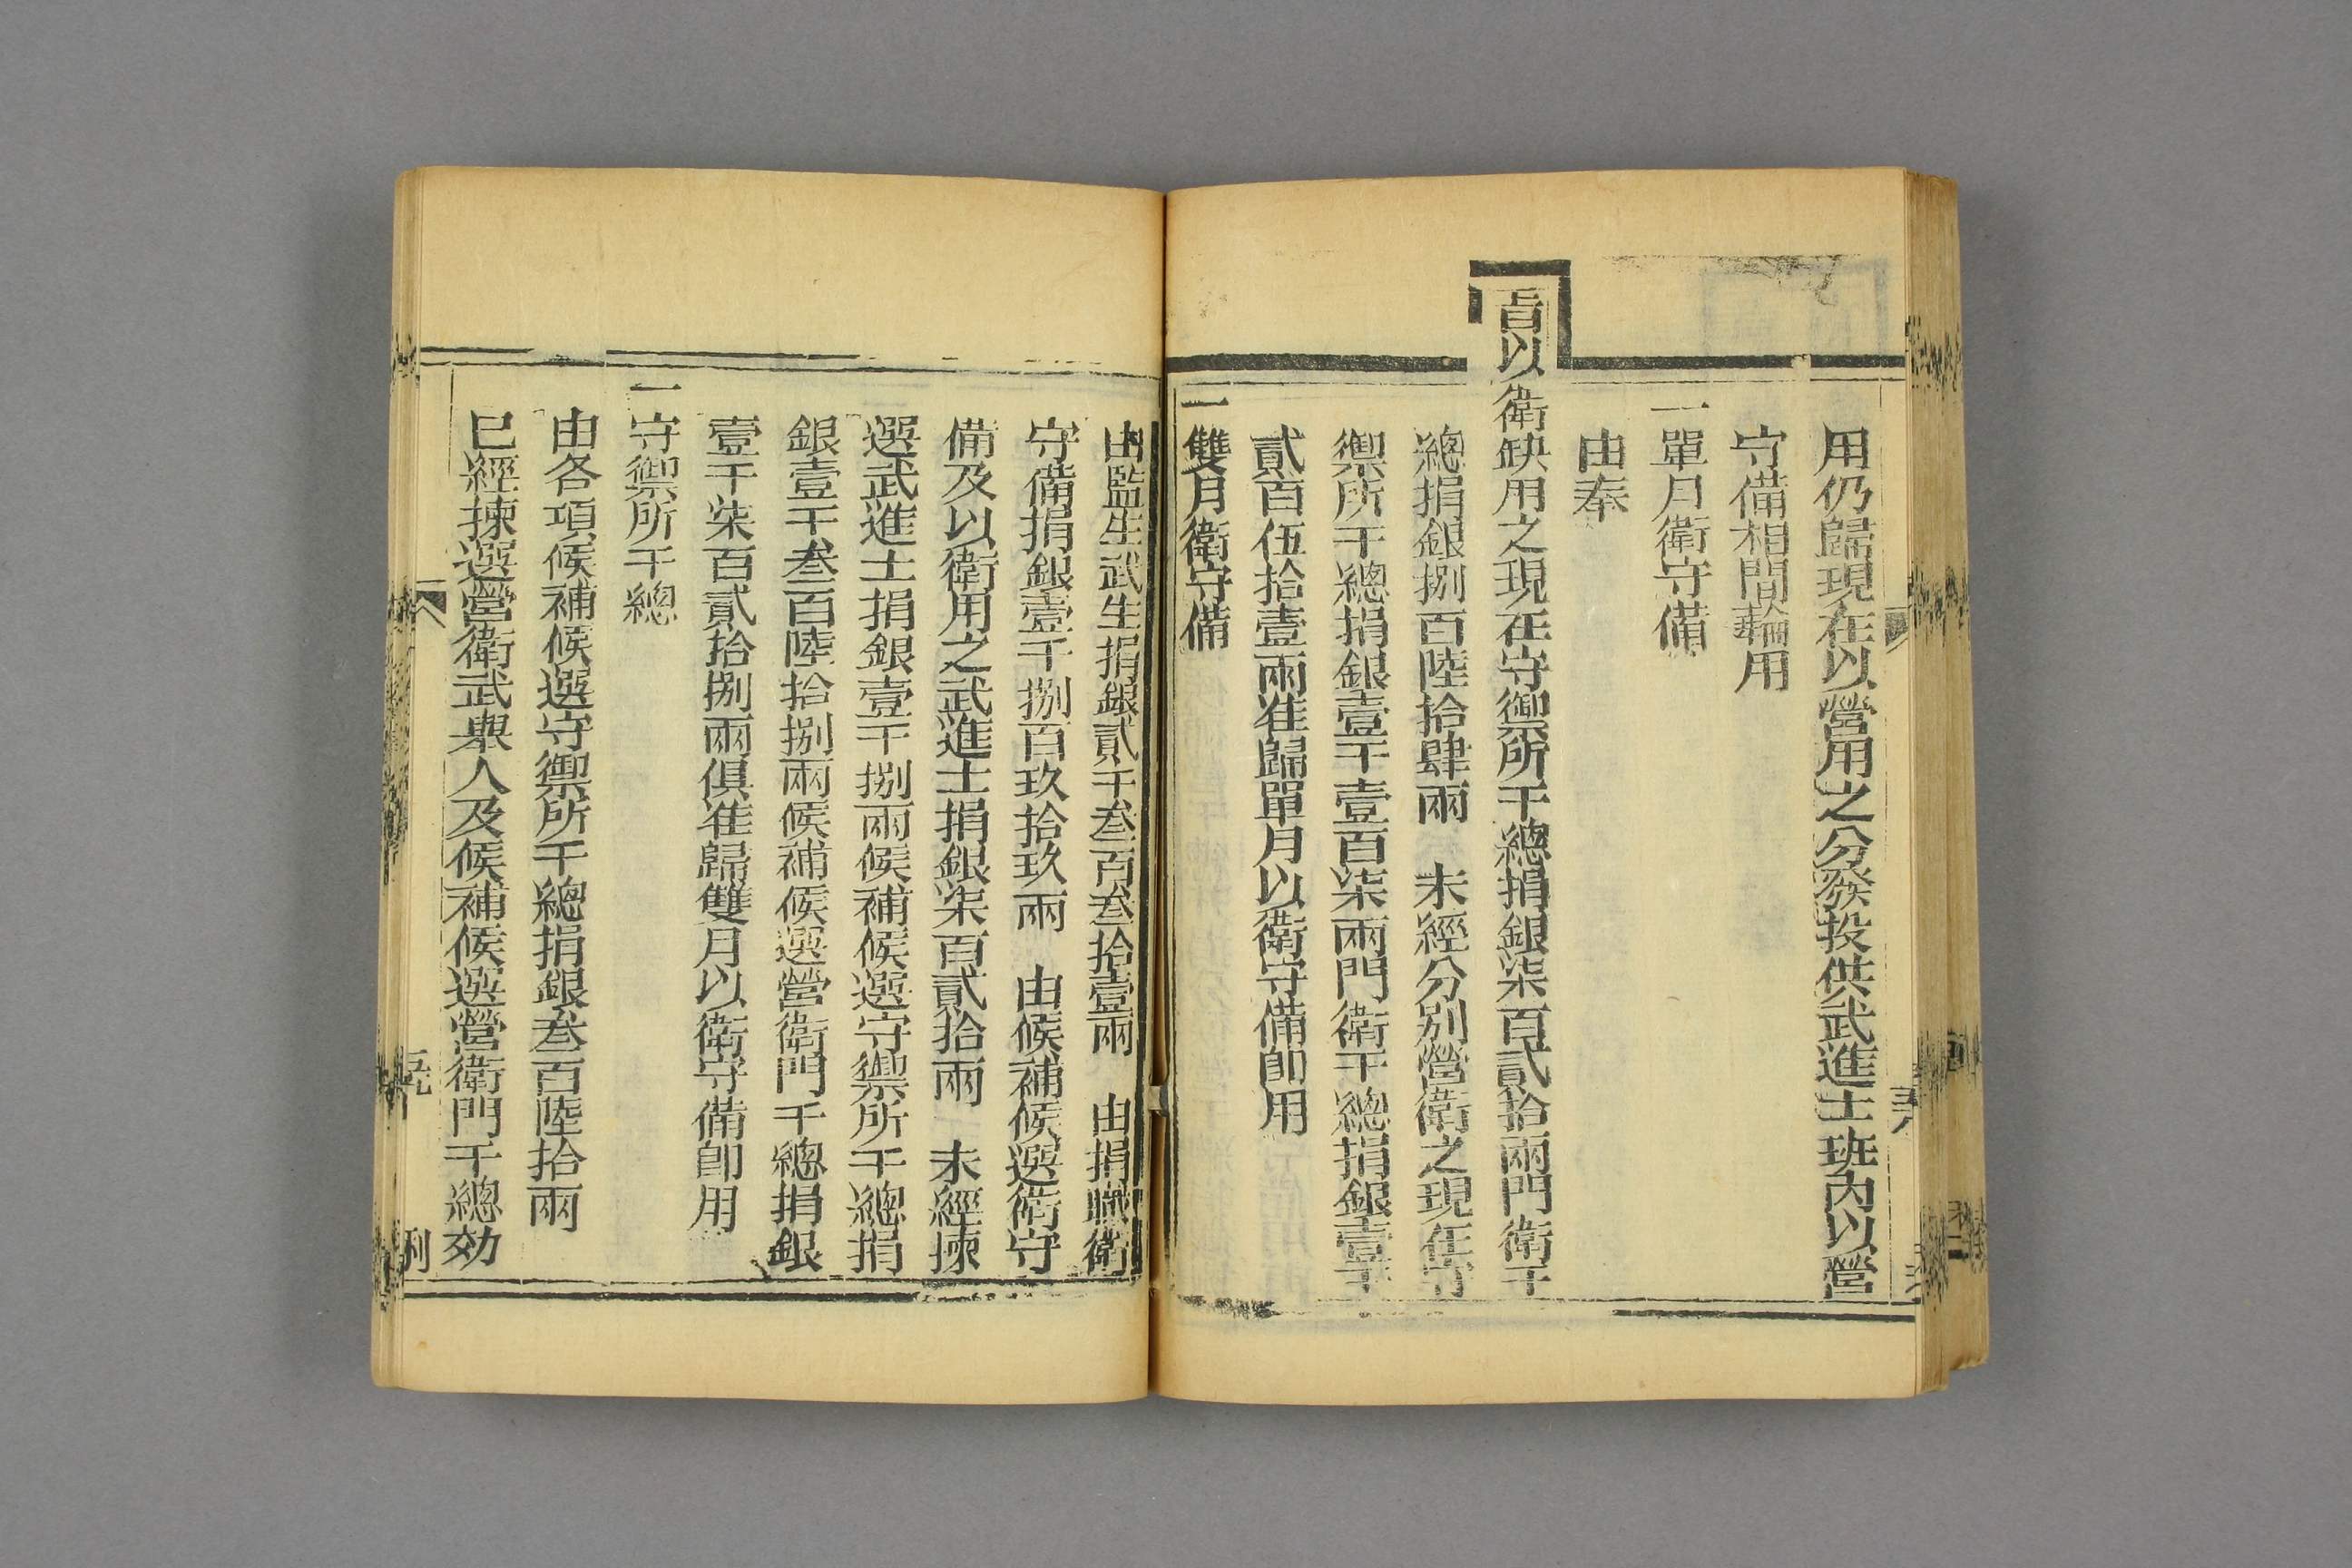 用仍歸現在以營用之分發投供武進士班內以營
守備相間輪用
一單月衛守備
由奉
旨以衛缺用之現在守禦所千總捐銀柒百貳拾兩門衛千
總捐銀捌百陸拾肆兩　未經分別營衛之現在守
禦所千總捐銀壹千壹百柒兩門衛千總捐銀壹千
貳百伍拾壹兩准歸單月以衛守備卽用
一雙月衛守備
由監生武生捐銀貳千叁百叁拾壹兩　由捐職衛
守備捐銀壹千捌百玖拾玖兩　由候補候選衛守
備及以衛用之武進士捐銀柒百貳拾兩　未經揀
選武進士捐銀壹千捌兩候補候選守禦所千總捐
銀壹千叁百陸拾捌兩候補候選營衛門千總捐銀
壹千柒百貳拾捌兩俱准歸雙月以衛守備卽用
一守禦所千總
由各項候補候選守禦所千總捐銀叁百陸拾兩
已經揀選營衛武舉人及候補候選營衛門千總効